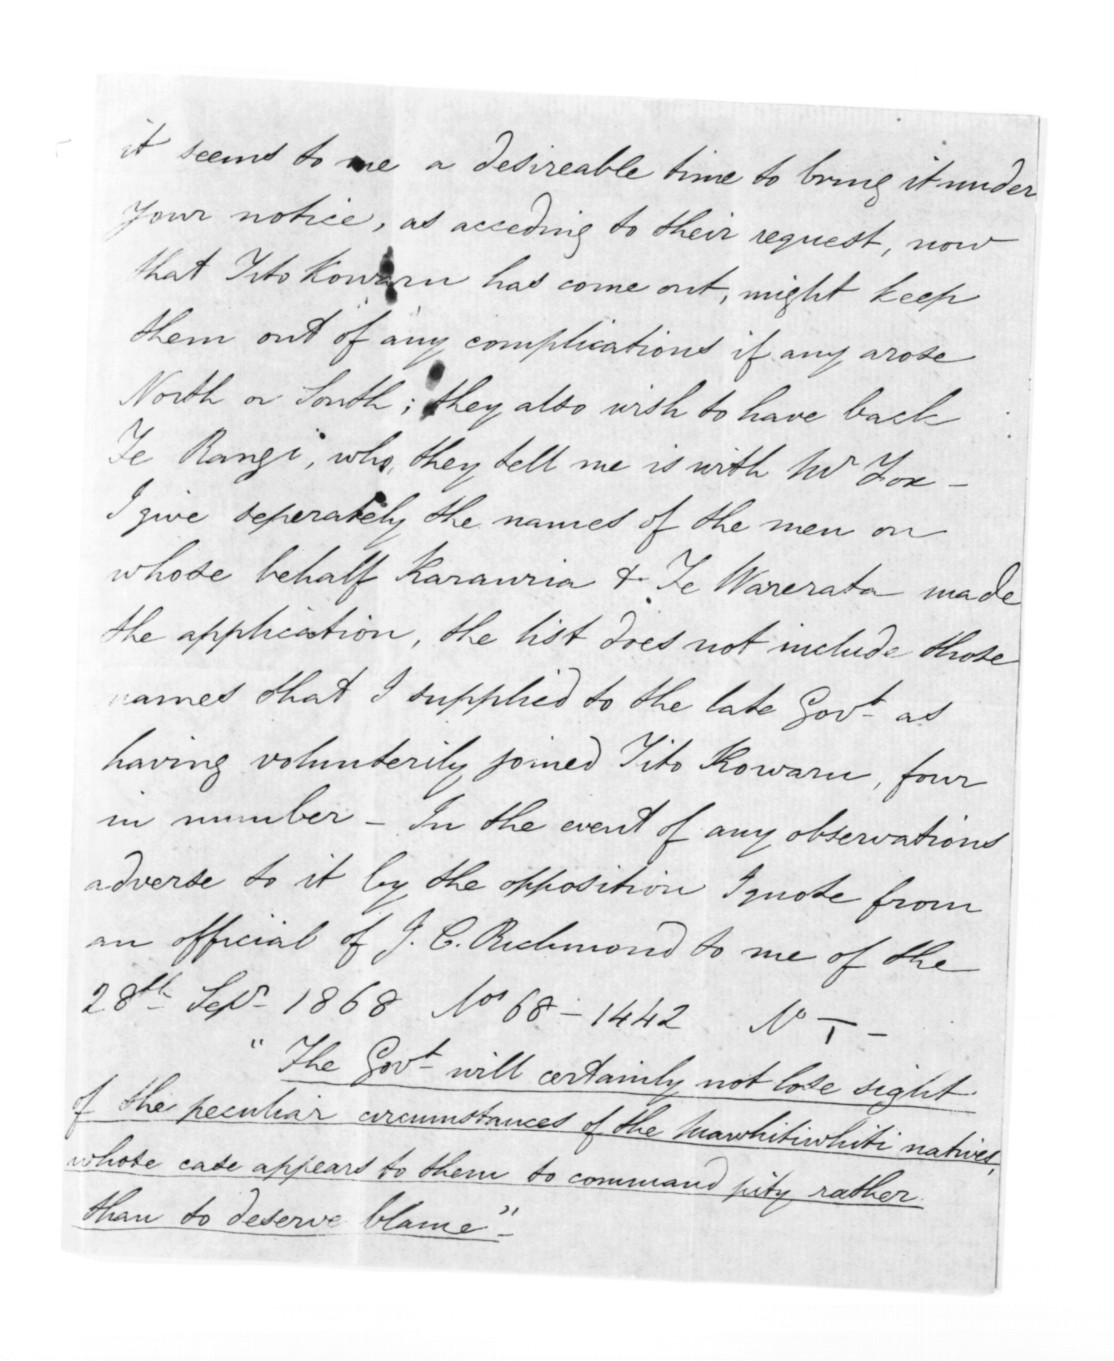 it seems to me a desireable time to bring it under
your notice, as acceding to their request, now
that Tito Kowaru has come out, might keep
them out of any complications if any arose
North or South; they also wish to have back
Te Rangi, who, they tell me is with Mr Fox -
I give seperately the names of the men on
whose behalf Karauria & Te Warerata made
the application, the list does not include those
names that I supplied to the late Govt as
having volunterily joined Tito Kowaru, four
in number - In the event of any observations
adverse to it by the opposition I quote from
an official of J. C. Richmond to me of the
28th Sepr 1868 Nos 68-1442 No 1 -
"The Govt will certainly not lose sight
of the peculiar circumstances of the Mawhitiwhiti natives,
whose case appears to them to command pity rather
than to deserve blame"-